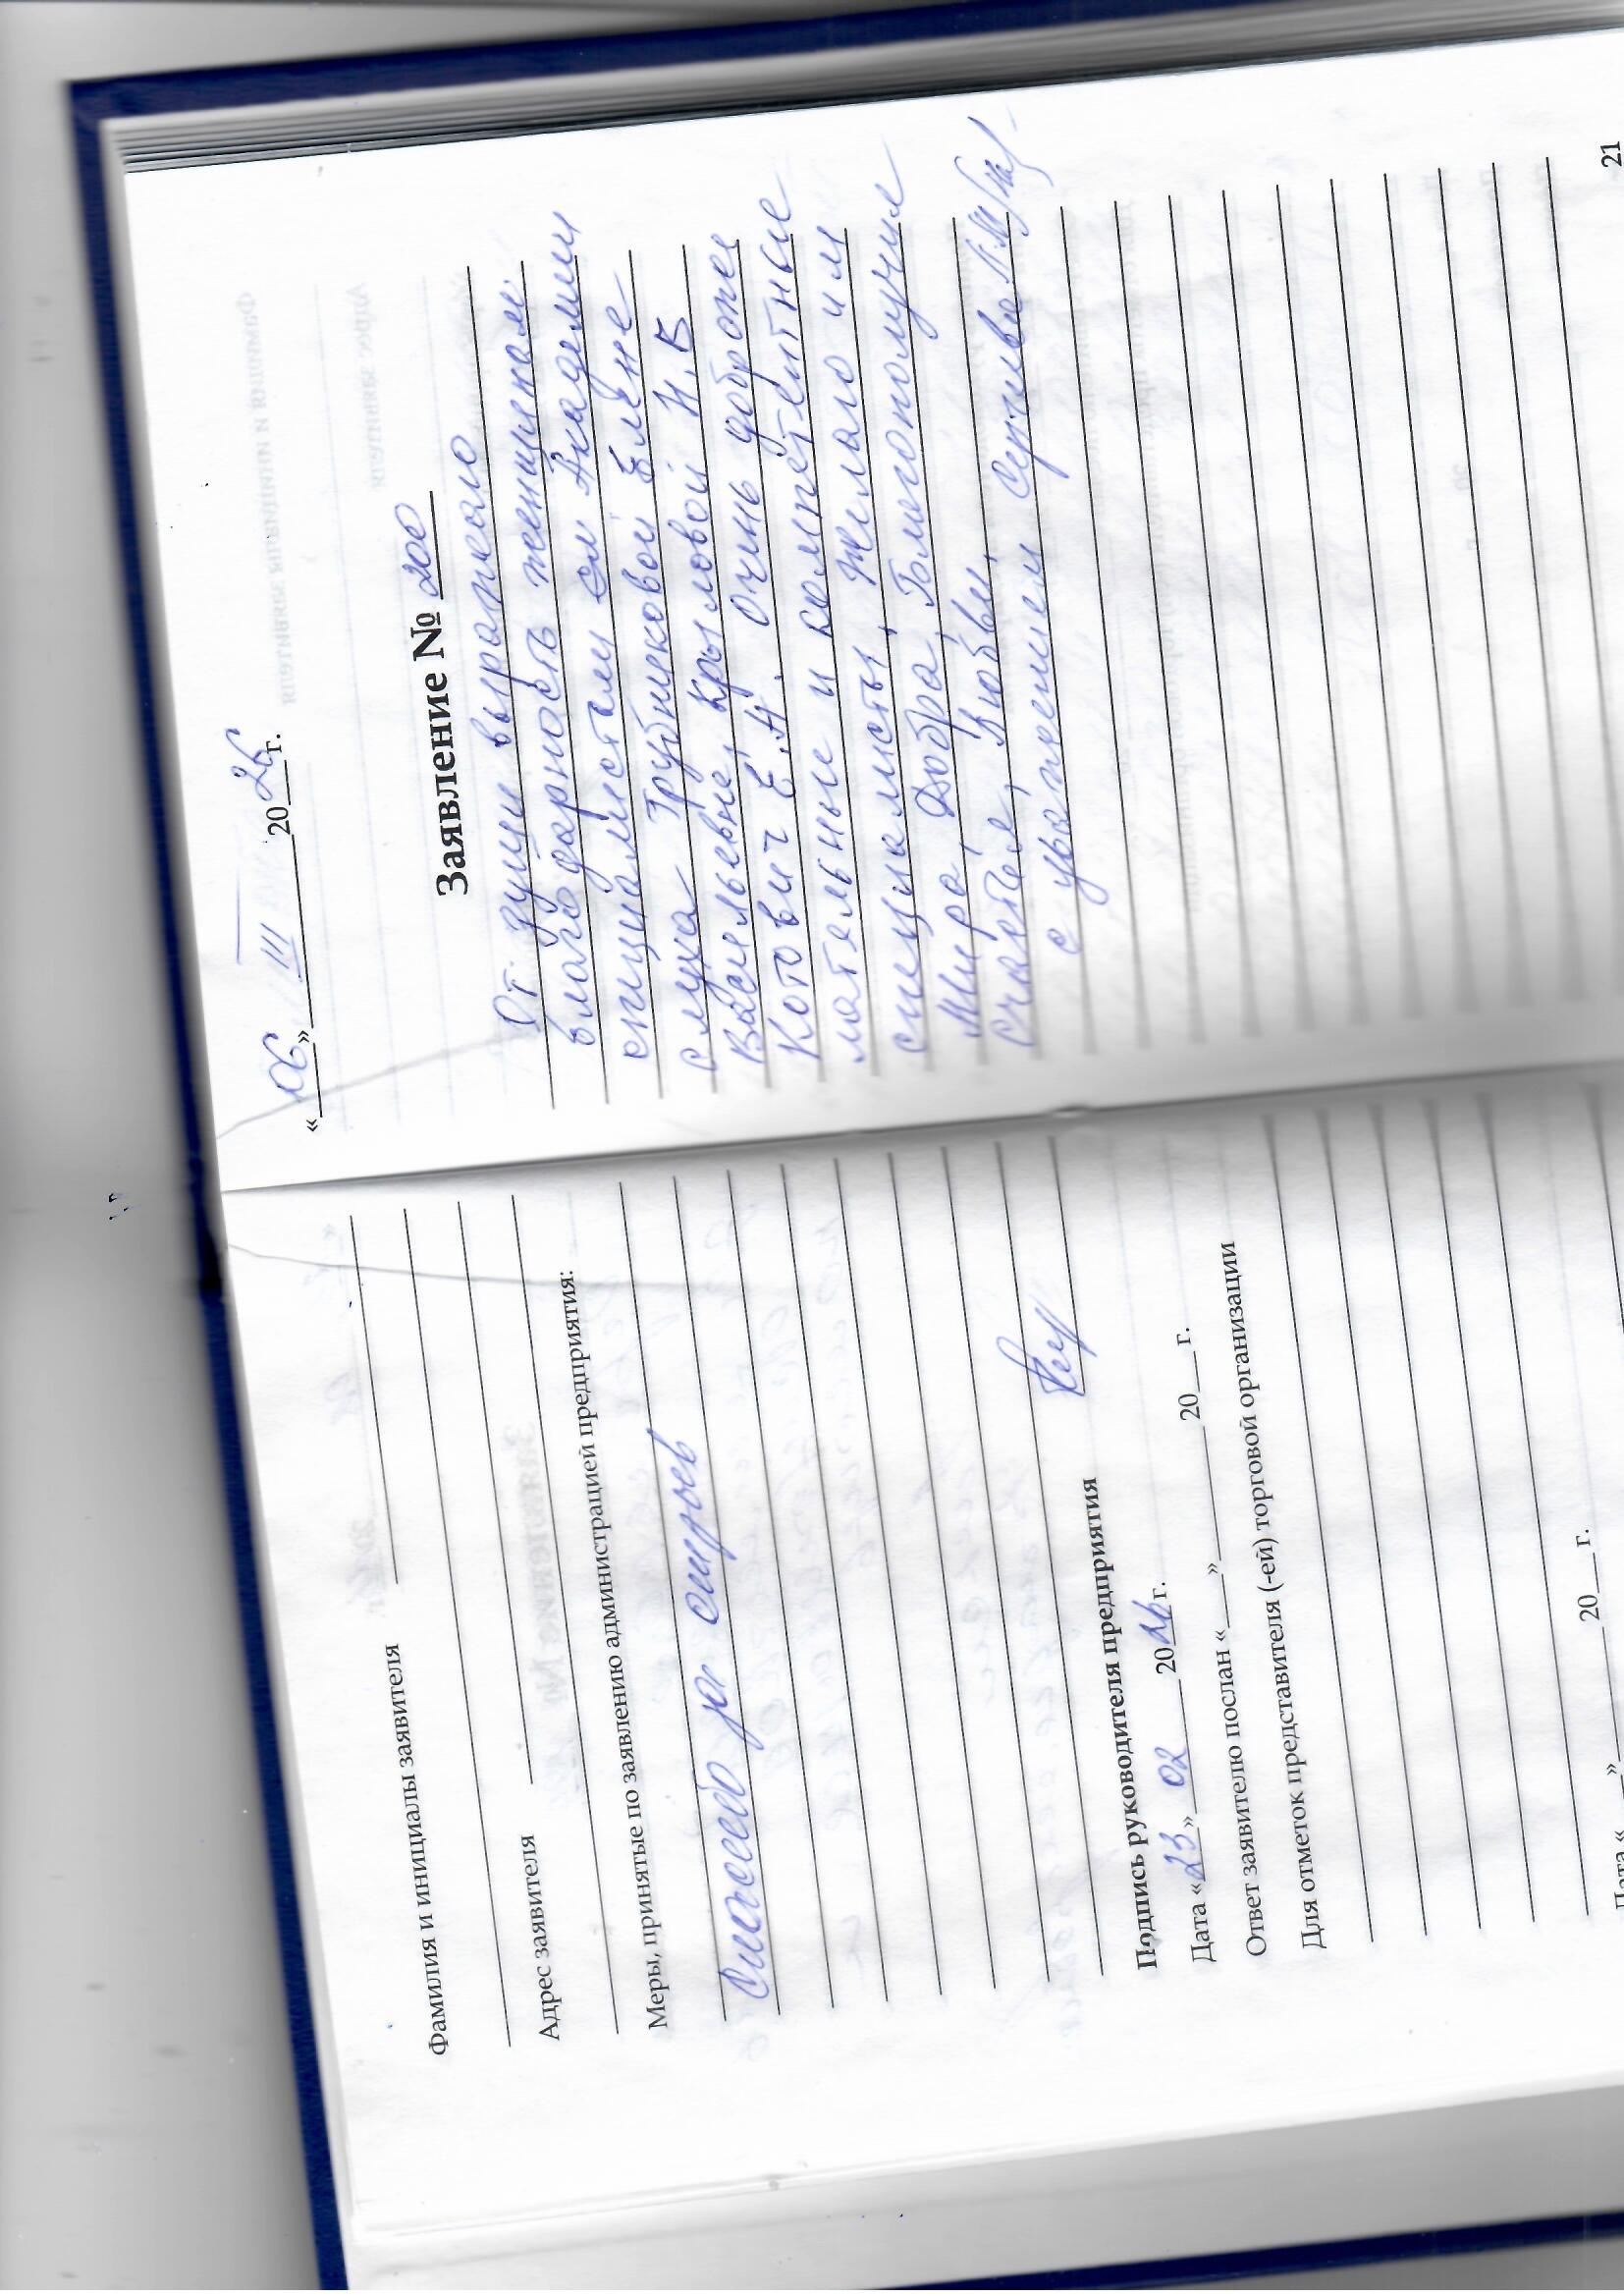 Фамилия и инициалы заявителя
Адрес заявителя
Меры, принятые по заявлению администрацией предприятия:
Спасибо за отзыв
Подпись руководителя предприятия
Дата «23» 02 2026 г.
Ответ заявителю послан «___»________ 20___ г.
Для отметок представителя (-ей) торговой организации
20___ г.
Дата «___»
«06» III 2026 г.
Заявление № 200
От души выражаю
благодарность женщинам
специалистам Академии
слуха Трубниковой Елене
Васильевне, Крыловой Н.В
Котович Е.А. Очинь доброже
лательные и компетентные
специалисты, Желаю им
Мира, Добра, Благополучия
счастья, Любви,
с уважением Сергиева Л.М
21